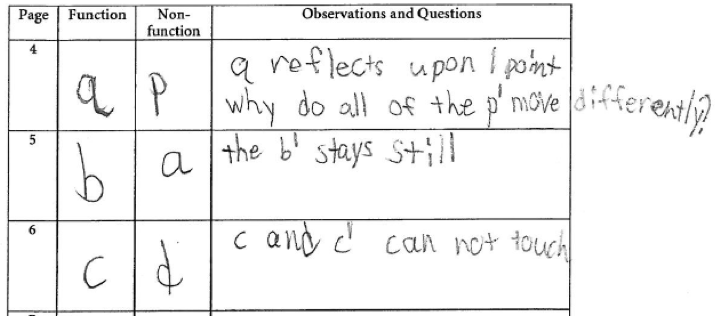 Page Function Non-function Observations and Questions
4 q p q reflects upon 1 point
why do all of the p' move differently?
5 b a the b' stays still
6 c d c and c' can not touch